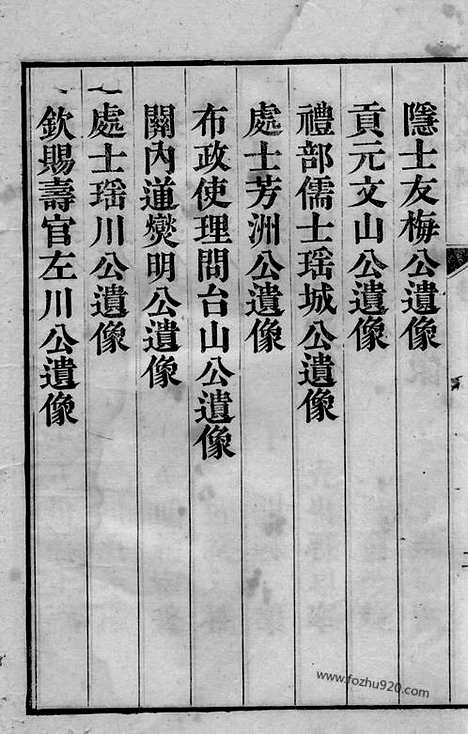 隱士友梅公遺像
貢元文山公遺像
禮部儒士瑶城公遺像
處士芳洲公遺像
布政使理問台山公遺像
關內道爕明公遺像
處士瑶川公遺像
欽賜壽官左川公遺像
www.fozhu920.com